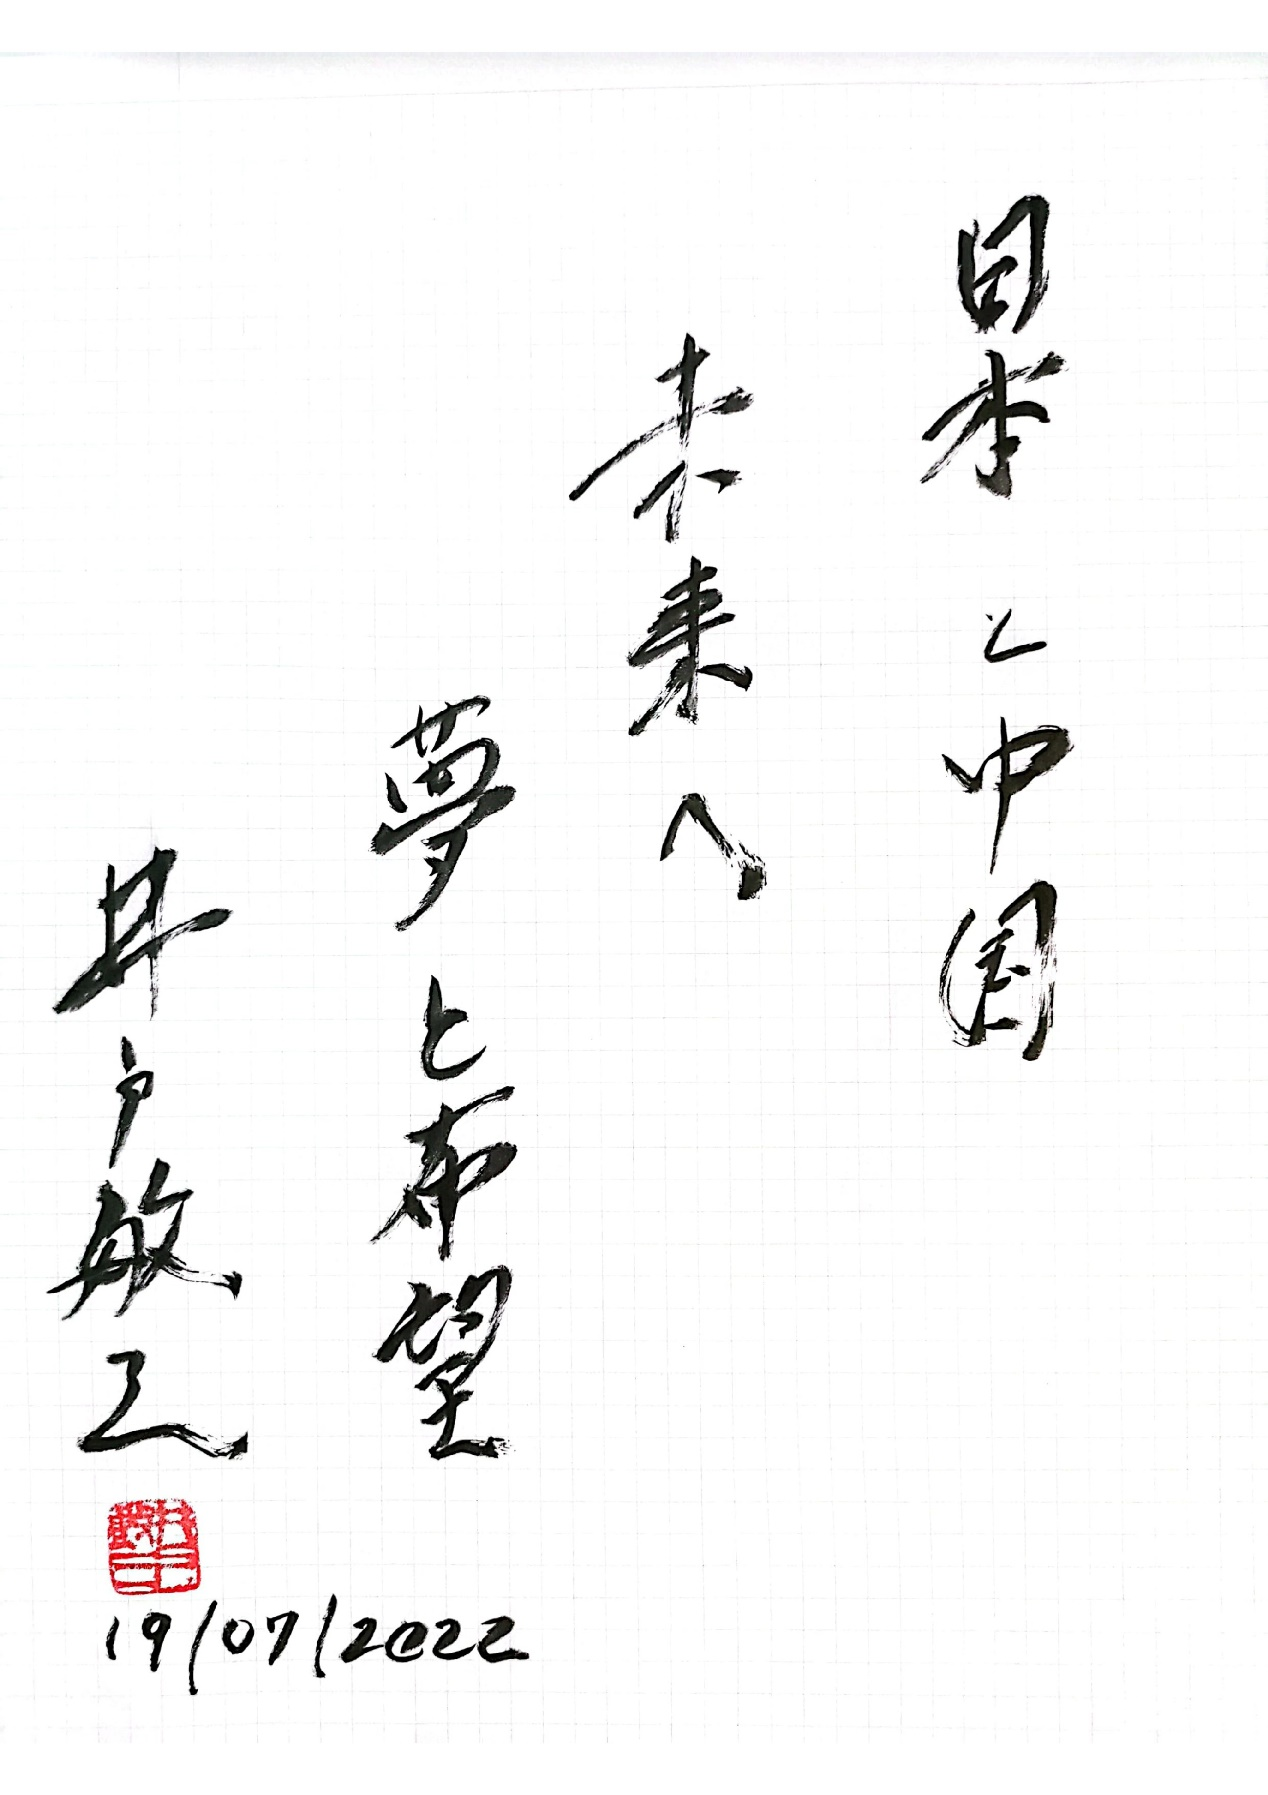 日本と中国
未来へ
夢と希望
井戸敏三
19/07/2022